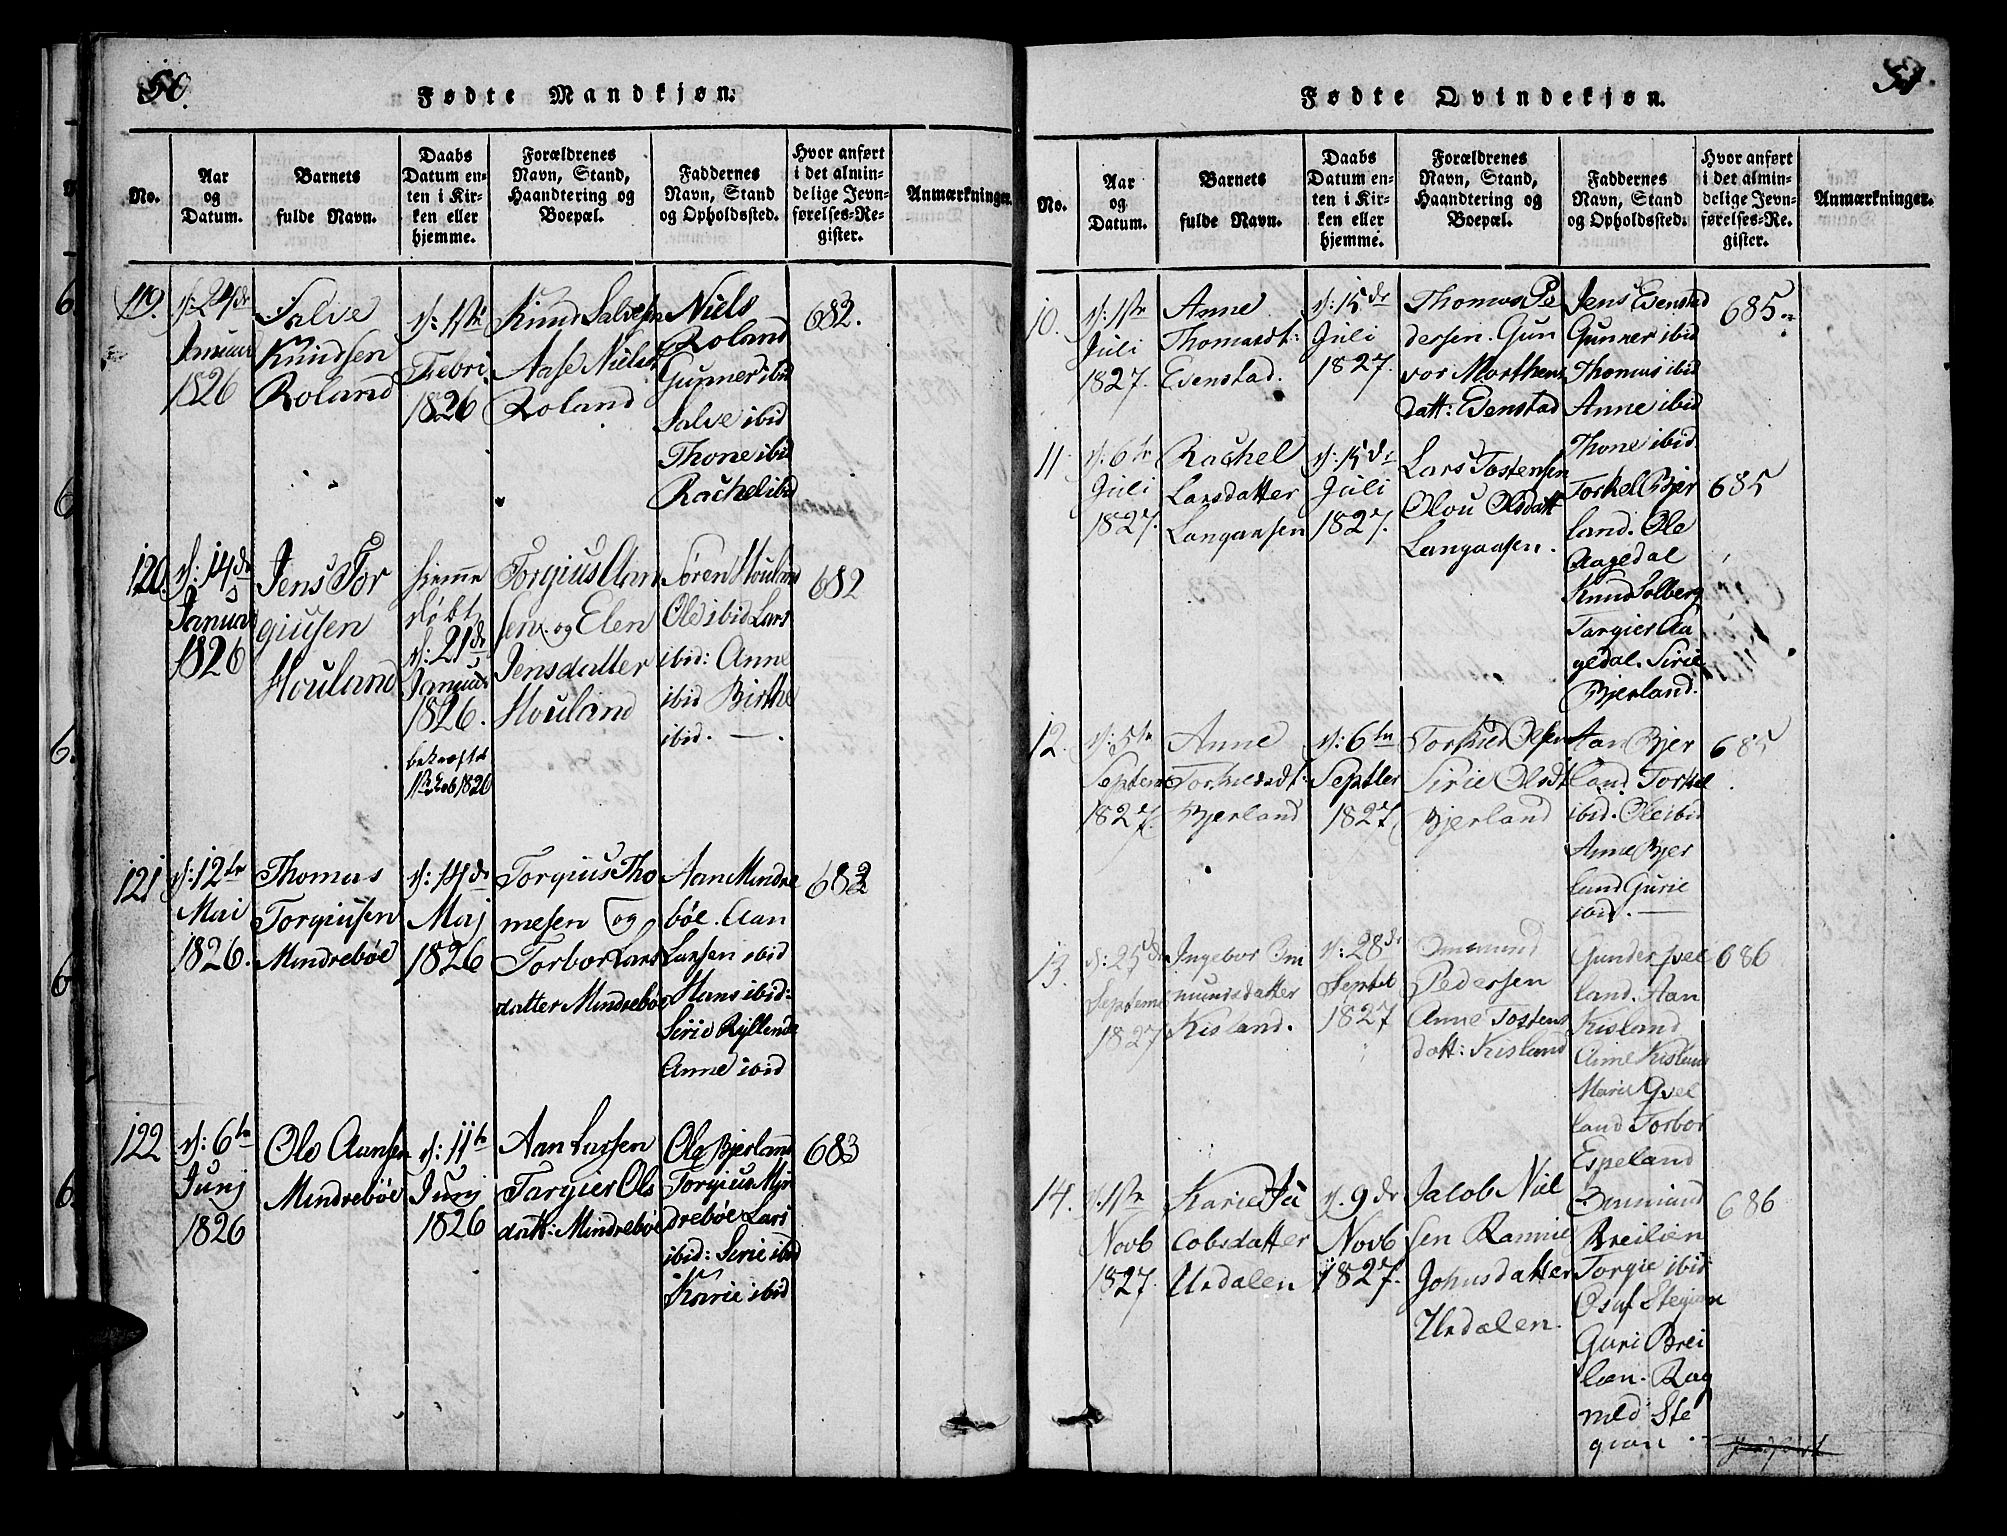 50.
Fødte Mandkjøn.
No.
Aar
og
Datum.
Barnets
fulde Navn.
Daabs
Datum en-
ten i Kir-
ken eller
hjemme.
Forældrenes
Navn, Stand,
Haandtering og
Boepæl.
Faddernes
Navn, Stand
og Opholdssted.
Hvor anført
i det almin-
delige Jevn-
førelses-Re-
gister.
Anmærkninger.
119.
d: 24de
Januar
1826
Salve
Knudsen
Roland
d: 1ste
Febri.
1826
Knud Salvesen
Aase Nielsd
Roland
Niels
Roland
Gunner ibid
Salve ibid
Thone ibid
Rachel ibid
682.
120.
d: 14de
Januar
1826
Jens Tor
giusen
Houland
hjemme
døbt
d: 21de
Januar
1826.
bekræftet
Torgius Aan
sen og Elen
Jensdatter
Houland
Søren Houland
Ole ibid Lars
ibid: Anne
ibid Birthe
ibid. —.
682
121
d: 12te
Mai
1826.
Thomas
Torgiusen
Mindrebøe
d: 14de
Maj
1826
Torgius Tho
mesen og
Torbor Lars
datter Mindrebøe
Aan Mindre
bøe. Aan
Larsen ibid
Hans ibid:
Serie Ryllende
Anne ibid
682
122
d: 6te
Junj
1826
Ole Aansen
Mindrebøe
d: 11te
Junj
1826
Aan Larsen
Targier Ols
datt: Mindrebøe
Ole Bjerland
Torgius Min
drebøe Lars
ibid: Serie ibid
Karie ibid
683
51.
Fødte Qvindekjøn.
No.
Aar
og
Datum.
Barnets
fulde Navn.
Daabs
Datum en-
ten i Kir-
ken eller
hjemme.
Forældrenes
Navn, Stand,
Haandtering og
Boepæl.
Faddernes
Navn, Stand
og Opholdssted.
Hvor anført
i det almin-
delige Jevn-
førelses-Re-
gister.
Anmærkninger.
10.
d: 1ste
Juli
1827.
Anne
Thomasdt:
Evenstad.
d: 15de
Juli
1827.
Thomas Pe
dersen. Gun
vor Morthens
datt: Evenstad
Jens Evenstad
Gunner ibid
Thomas ibid
Anne ibid
Thone ibid
685
11
d: 6te
Juli
1827.
Rachel
Larsdatter
Langaasen
d: 15de
Juli
1827.
Lars Tostensen
Olou Olsdatt
Langaasen.
Torkel Bjer
land. Ole
Aagedal
Knud Solberg
Targier Aa
gedal. Sirie
Bjerland.
685
12.
d: 5te
Septem
1827.
Anne
Torkieldsdt:
Bjerland
d: 6te
Septber
1827
Torkield Olsen
Sirie Olsdt
Bjerland
Aan Bjer
land. Torkel
ibid. Ole ibid
Anne Bjer
land Gurie
ibid. —
685
13.
d: 25de
Septem
1827
Ingebor Om
mundsdatter
Kisland.
d: 28de
Septeb
1827
Ommund
Pedersen
Anne Tostens
datt: Kisland
Gunder Qvel
land. Aan
Kisland
Anne Kisland
Marie Qvel
land Torbor
Espeland
686
14.
d. 1ste
Novb
1827.
Karie Ja
cobsdatter
Urdalen
d. 9de
Novb
1827.
Jacob Niel
sen Rannie
Johnsdatter
Urdalen.
Ommund
Breilien
Torgie ibid
Osuf Stegian
Guri Brei
lien. Rag
nild Ste
gian
686